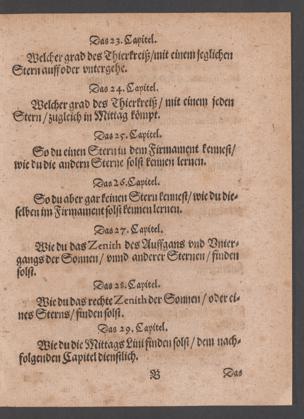 Das 23. Capitel.
Welcher grad des Thierkreiß/mit einem jeglichen
Stern auff oder vntergehe.
Das 24. Capitel.
Welcher grad des Thierkreiß / mit einem jeden
Stern / zugleich in Mittag kömpt.
Das 25. Capitel.
So du einen Stern in dem Firmament kennest/
wie du die andern Sterne solst kennen lernen.
Das 26. Capitel.
So du aber gar keinen Stern kennest/ wie du die-
selben im Firmament solst kennen lernen.
Das 27. Capitel.
Wie du das Zenith des Auffgans vnd Vnter-
gangs der Sonnen / vnnd anderer Sternen / finden
solst.
Das 28. Capitel.
Wie du das rechte Zenith der Sonnen / oder ei-
nes Sterns/ finden solst.
Das 29. Capitel.
Wie du die Mittags Lini finden solst/ dem nach-
folgenden Capitel dienstlich.
B Das